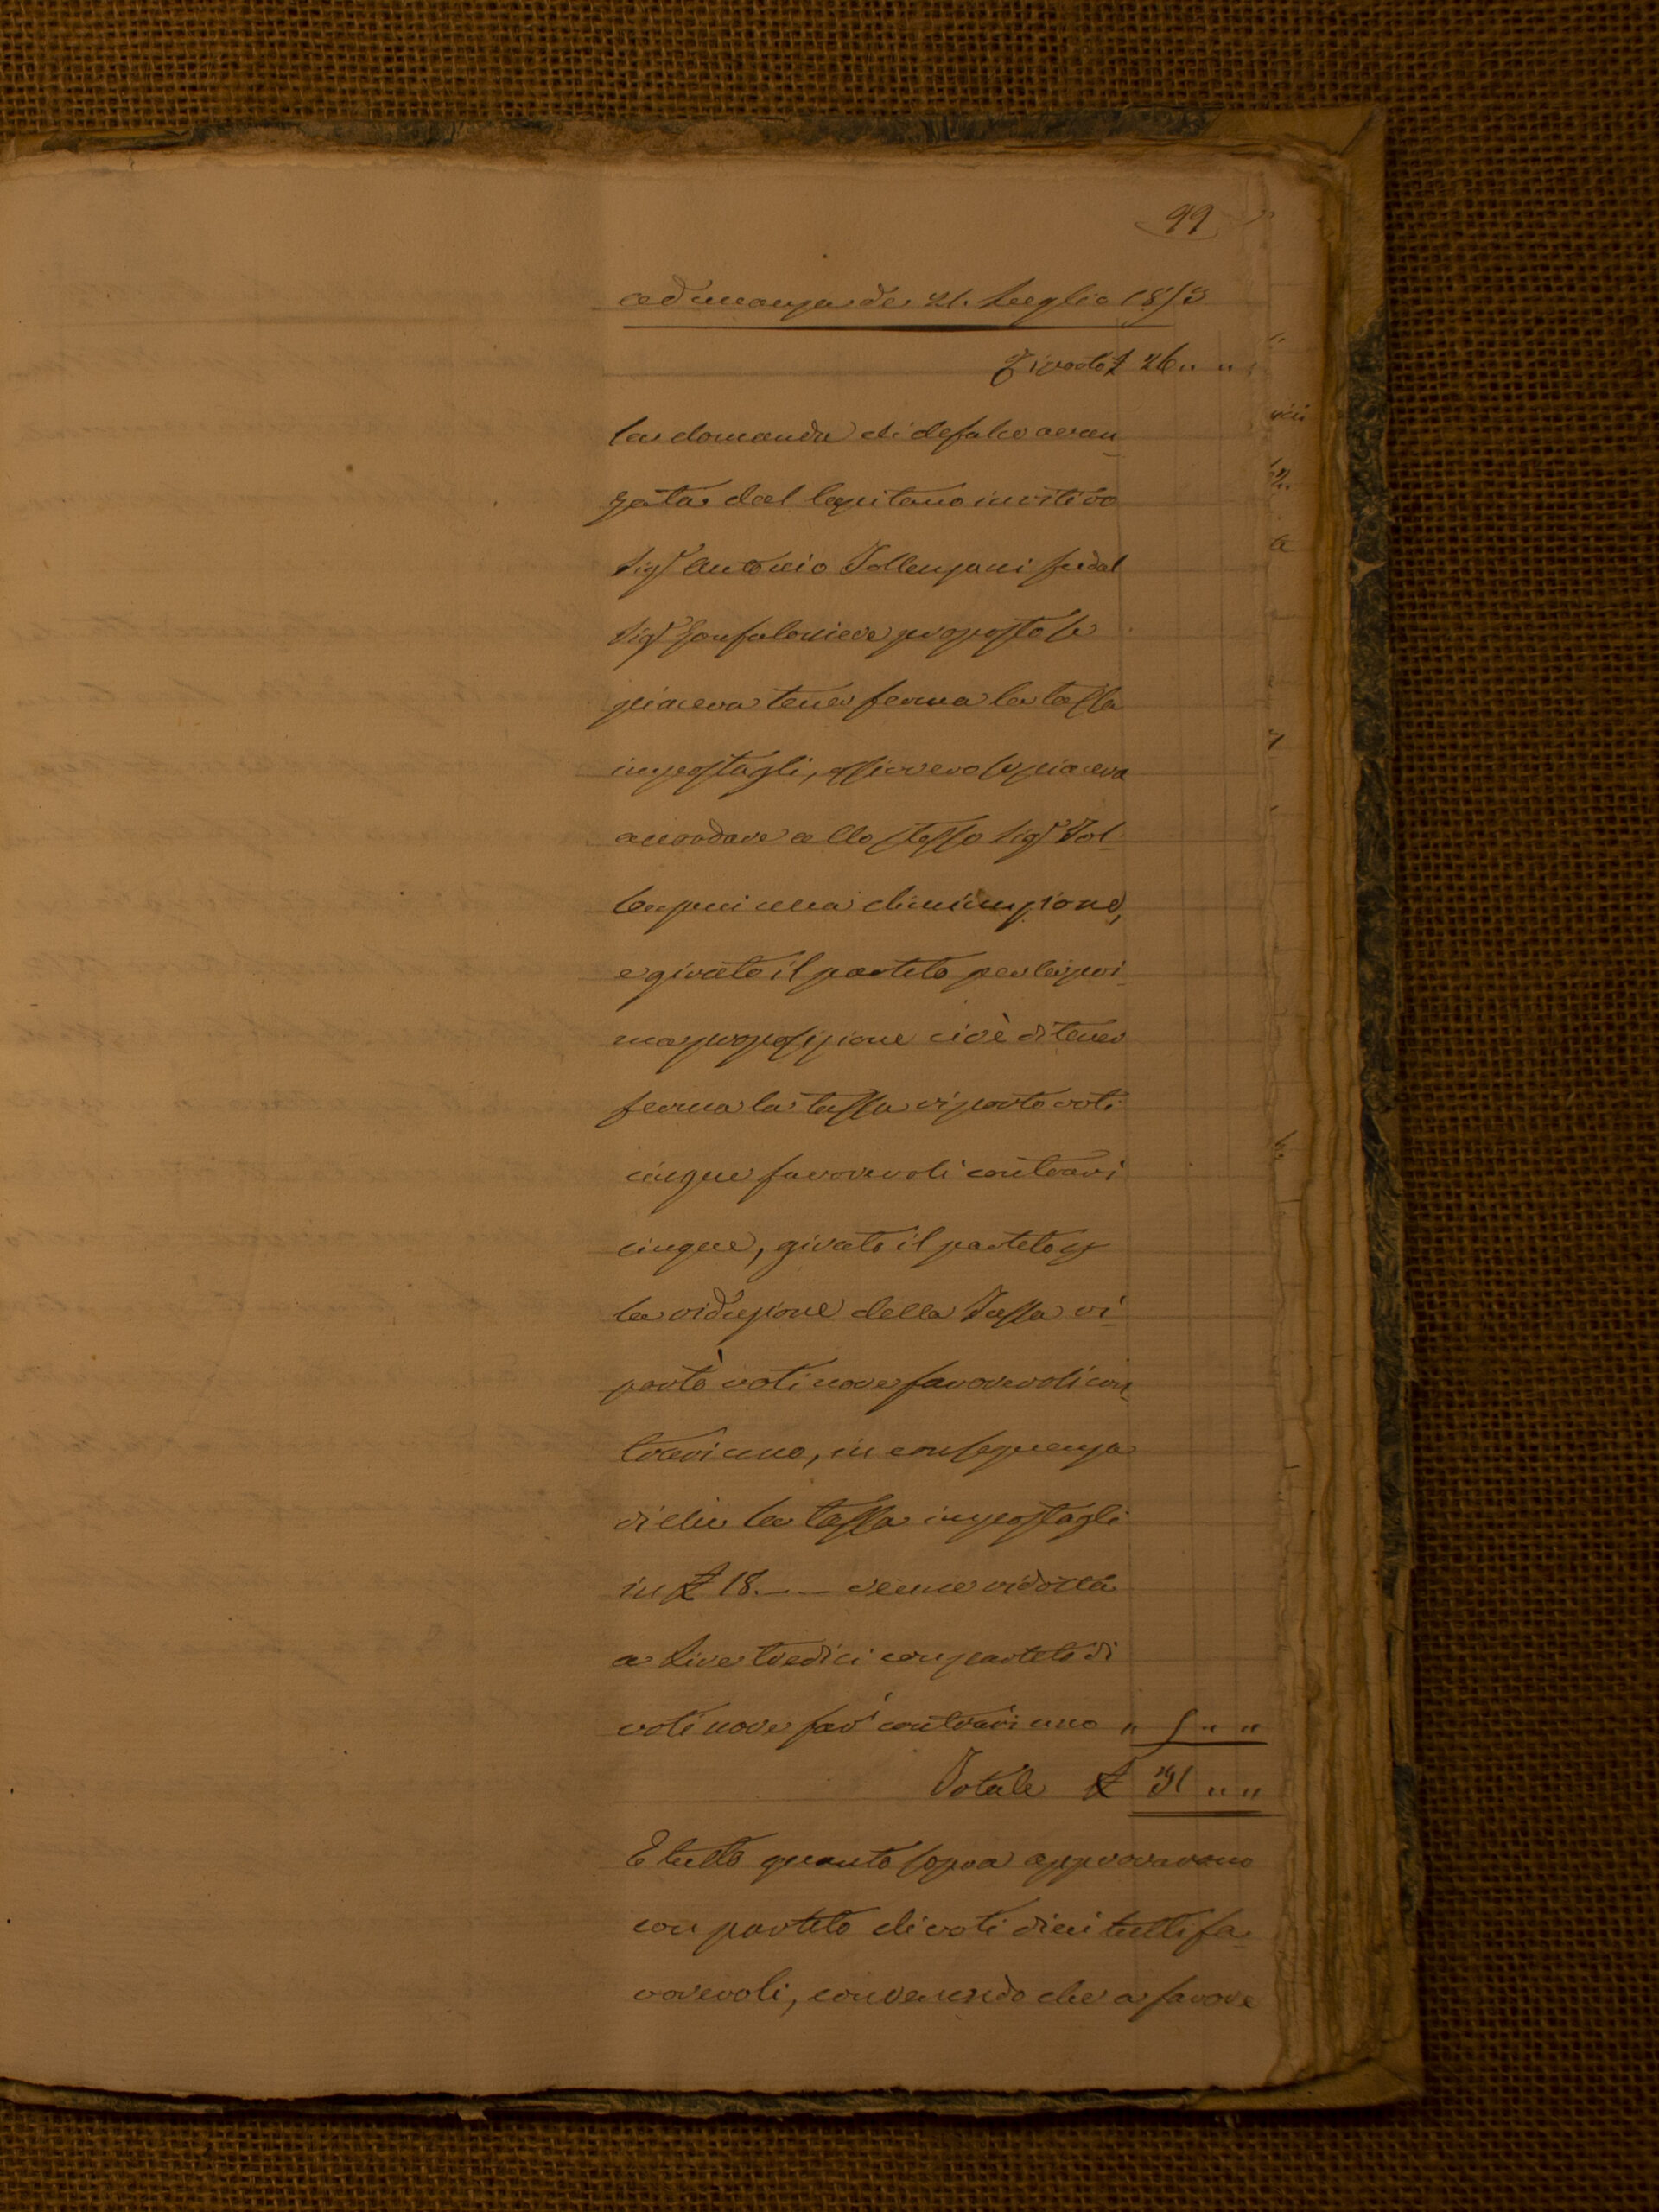 99
adunanza de 21. Luglio 1853
Riporto £ 26 " "
la domanda di defalco avan
zata dal Capitano in ritiro
Sigr Antonio Tollenzani fu dal
Sigr Gonfaloniere proposto se
piaceva tener ferma la tassa
impostagli, ossivvero se piaceva
accordare allo stesso Sigr Tol
diminuzione,
e girato il partito per la pri
ma proposizione cioè di tener
ferma la tassa riportò voti
cinque favorevoli contrari
cinque, girato il partito p
la riduzione della Tassa ri
portò voti nove favorevoli con
trari uno, in conseguenza
di che la tassa impostagli
in £ 18. - - venne ridotta
a Lire tredici con partito di
voti nove fav contrari uno " 5 " "
Totale £ 31 " "
E tutto quanto sopra approvarono
con partito di voti dieci tutti fa
vorevoli, convenendo che a favore